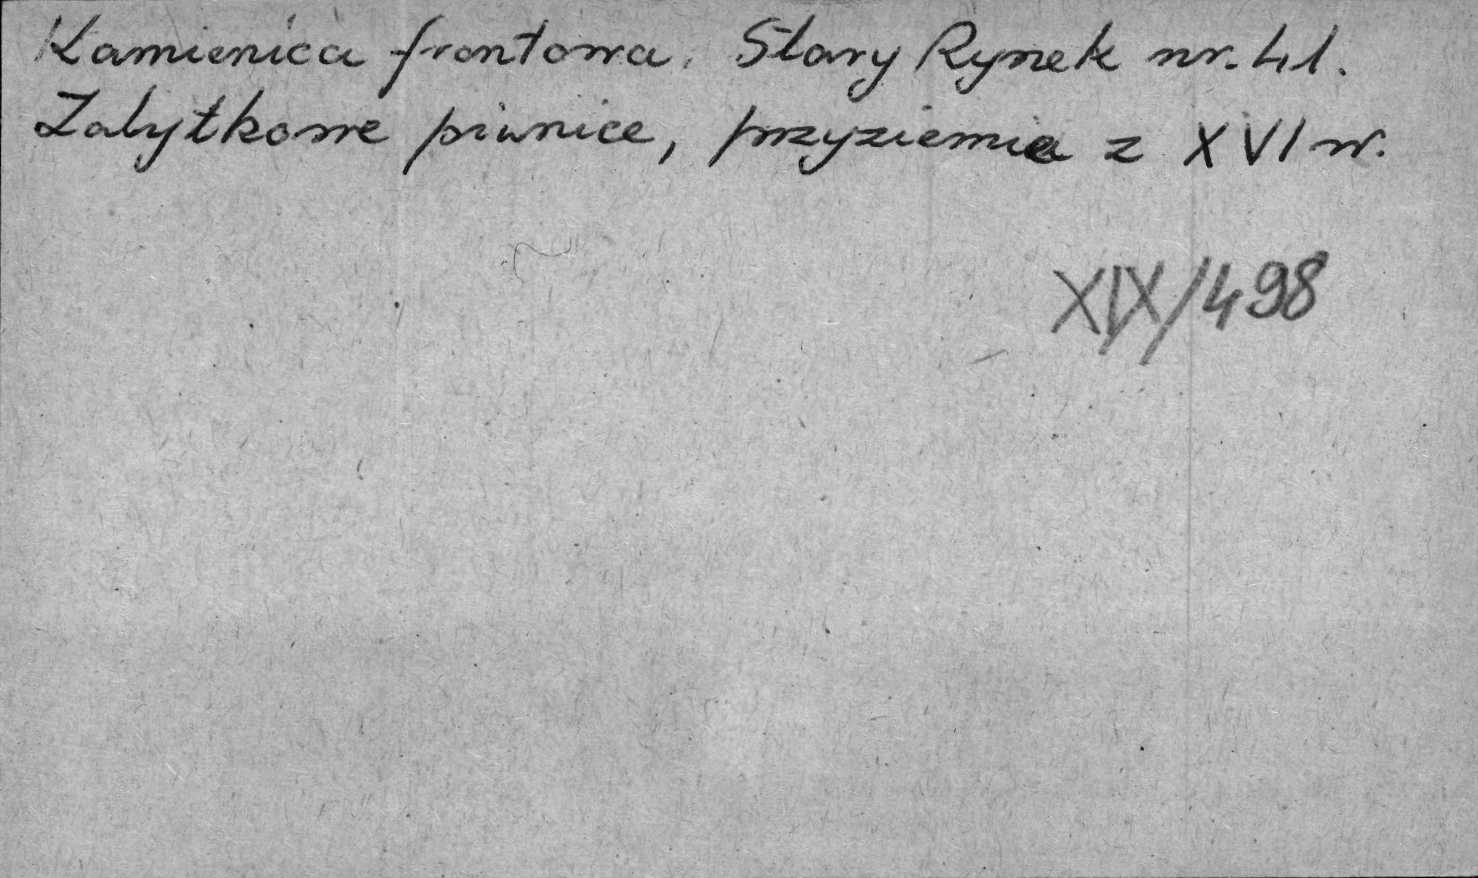 Kamienica frontowa. Stary Rynek nr. 41.
Zabytkowe piwnice, przyziemie z XVI w.
XIX/498